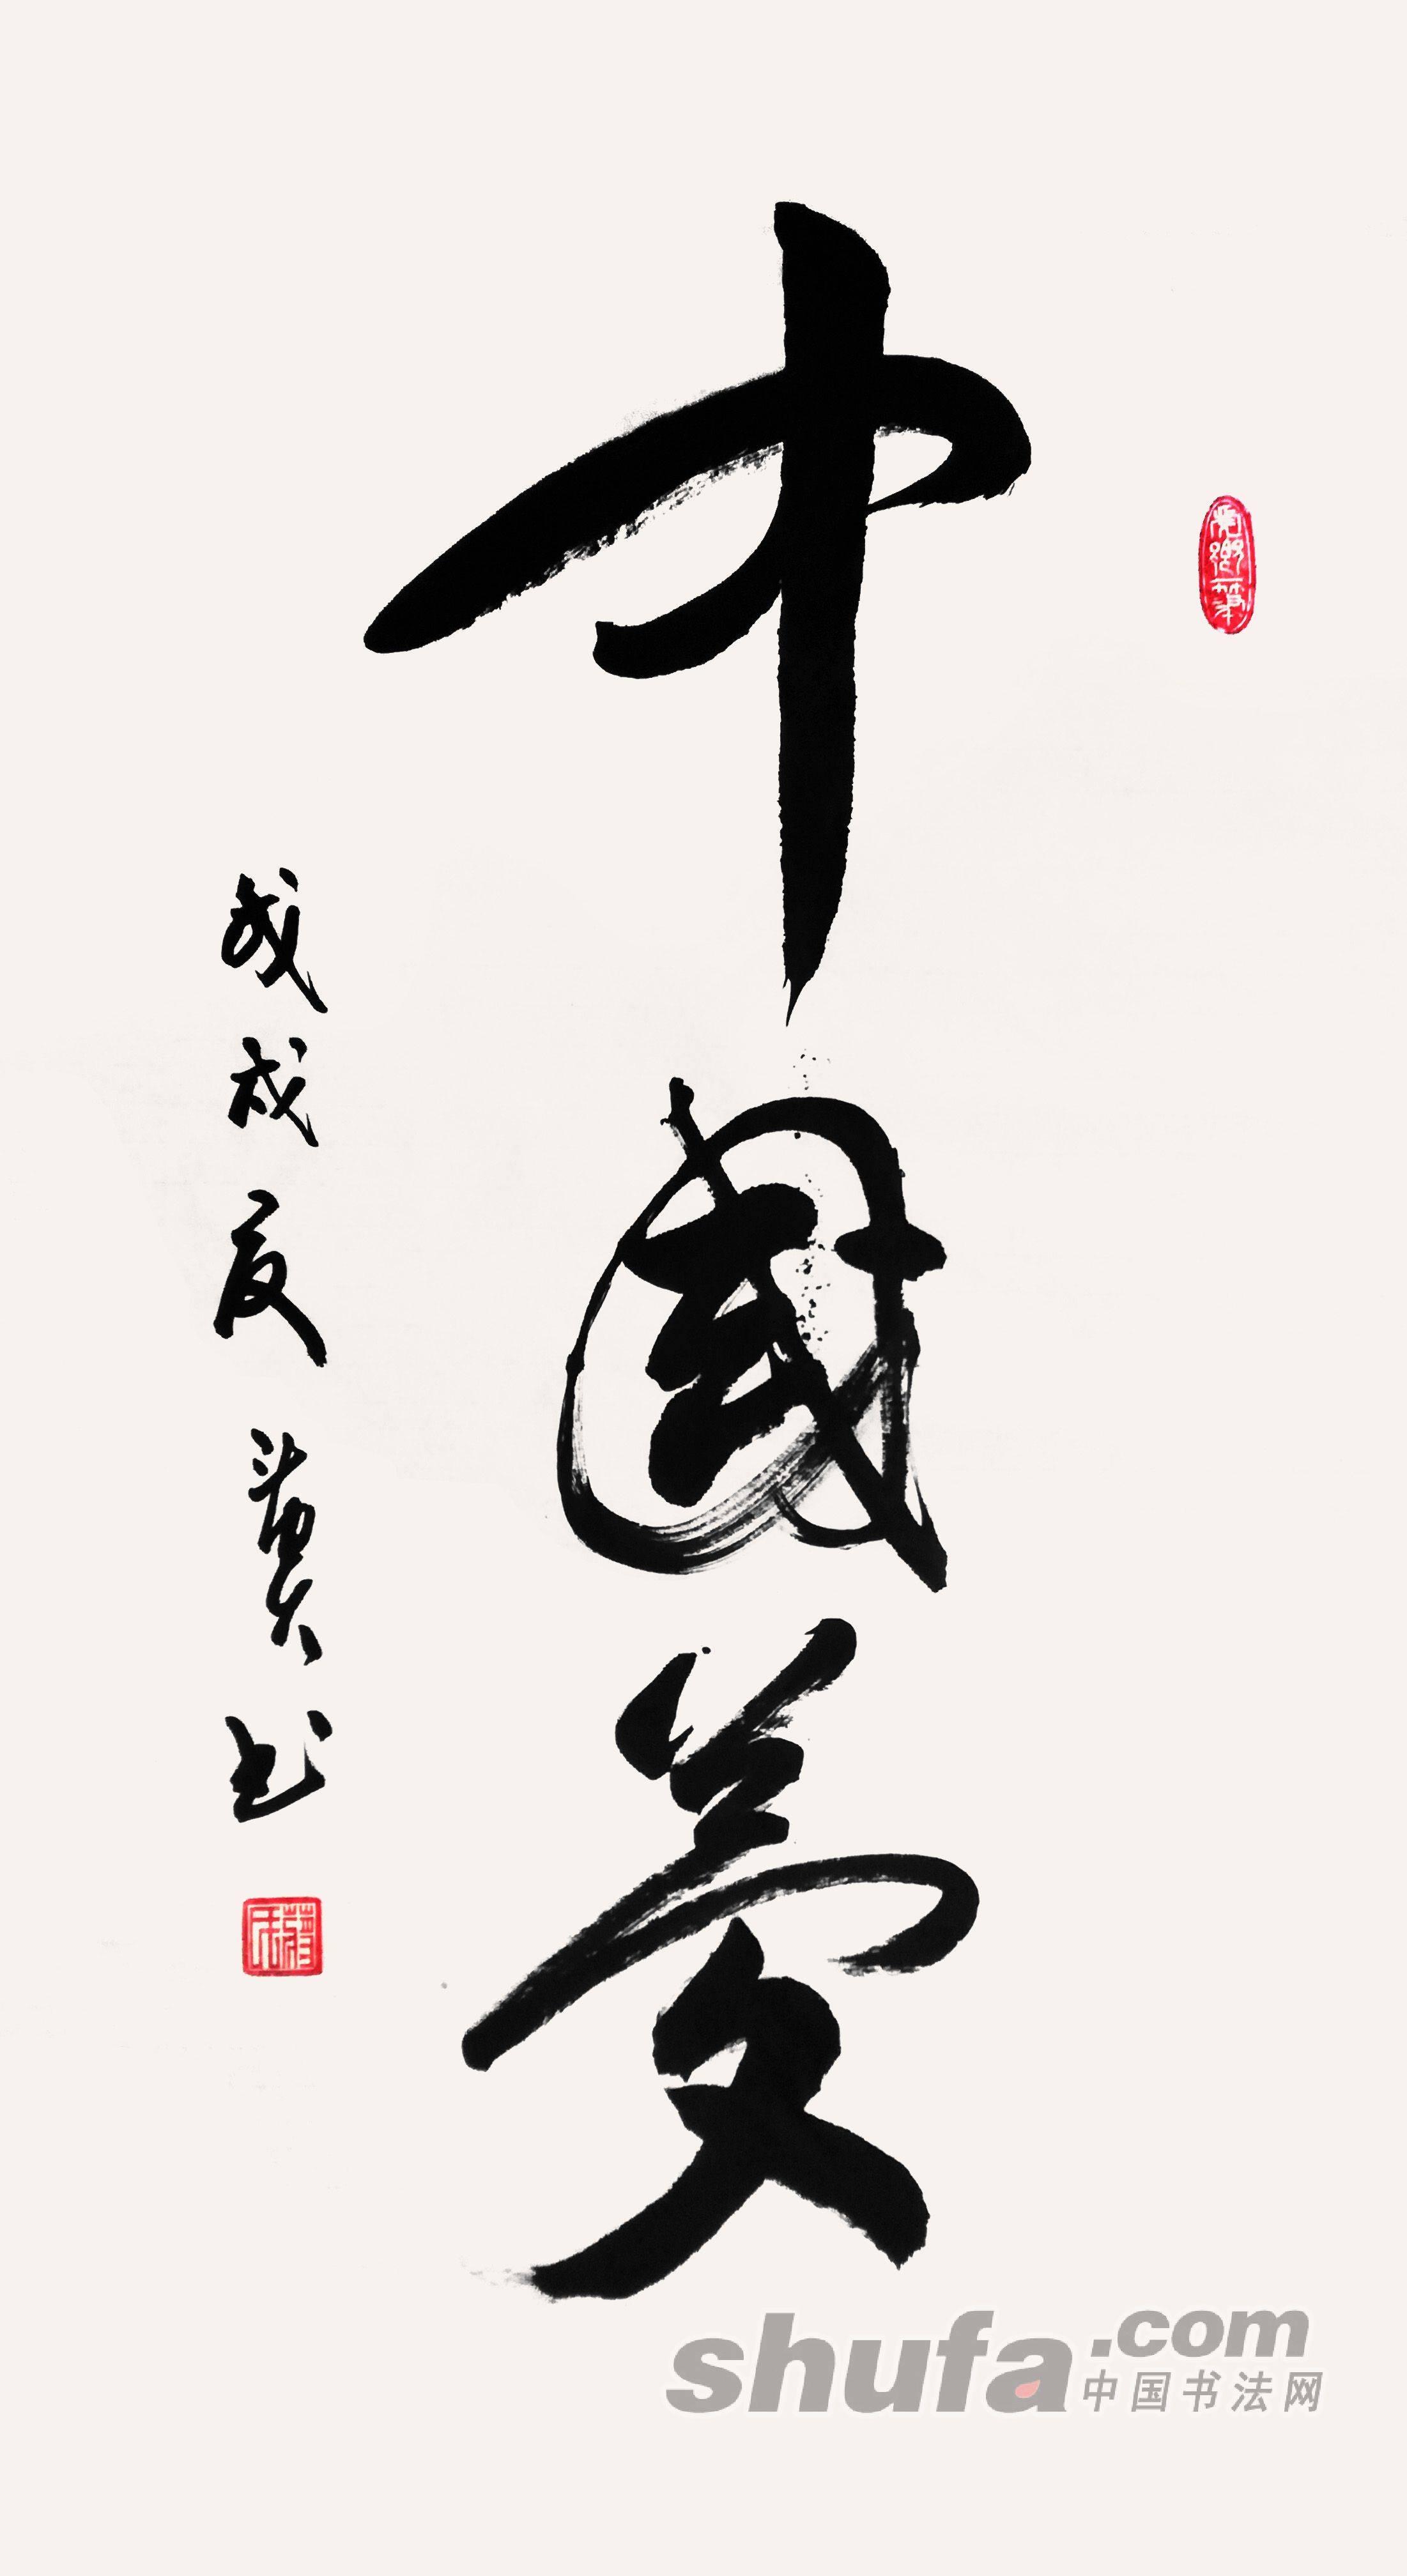 中國夢
戊戌夏 書
shufa.com
中国书法网